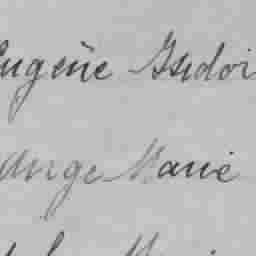 Eugène Isidor
Ange Marie